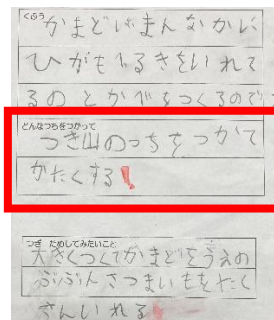 くふう
かまどはまんなかに
ひがもえるきをいれて
るのとかべをつくるので
どんなつちをつかって
つき山のつちをつかて
かたくする!
つぎ ためしてみたいこと
大きくつくてかまどをうえの
ぶぶんさつまいもをたく
さんいれる